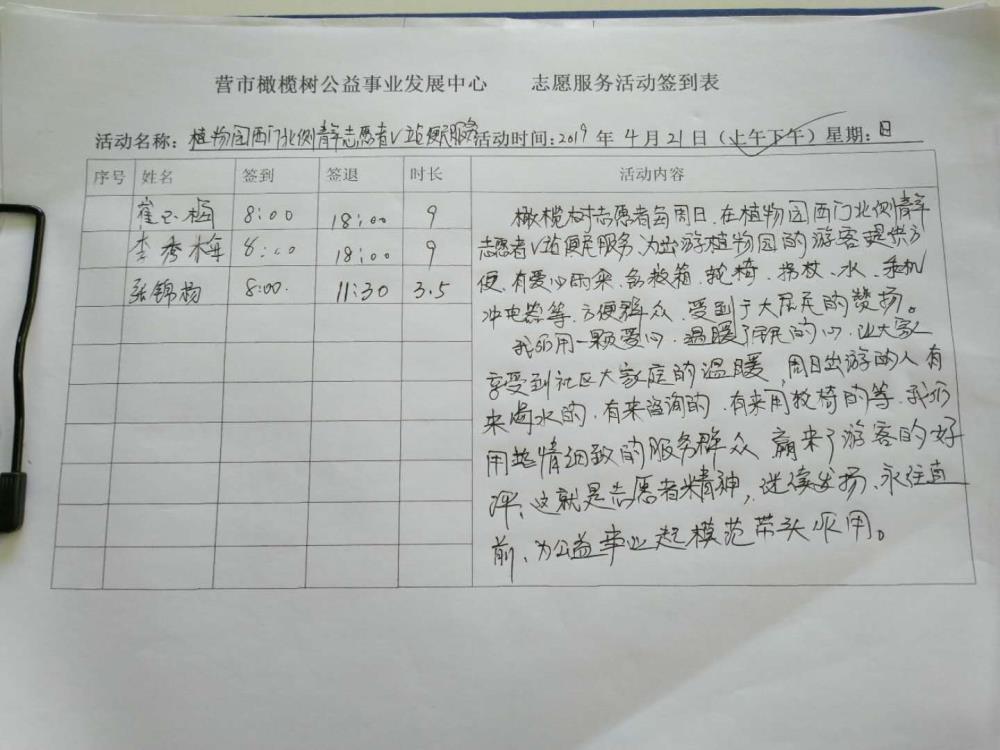 营市橄榄树公益事业发展中心 志愿服务活动签到表
活动名称：植物园西门北侧情年志愿者V站便民服务 活动时间：2019年4月21日（上午下午）星期：日
序号 姓名 签到 签退 时长 活动内容
崔玉梅 8:00 18:00 9
李秀梅 8:00 18:00 9
张锦杨 8:00. 11:30 3.5
橄榄树志愿者每周日、在植物园西门北侧情年
志愿者V站便民服务、为出游植物园的游客提供方
便、有爱心雨伞、急救箱、轮椅、拐杖、水、手机
冲电器等、方便群众、受到了大居民的赞扬。
我们用一颗爱心、温暖了居民的心、让大家
享受到社区大家庭的温暖、周日出游的人有
来喝水的、有来咨询的、有来用轮椅的等、我们
用热情细致的服务群众、赢来了游客的好
评、这就是志愿者精神，继续发扬、永往直
前、为公益事业起模范带头作用。